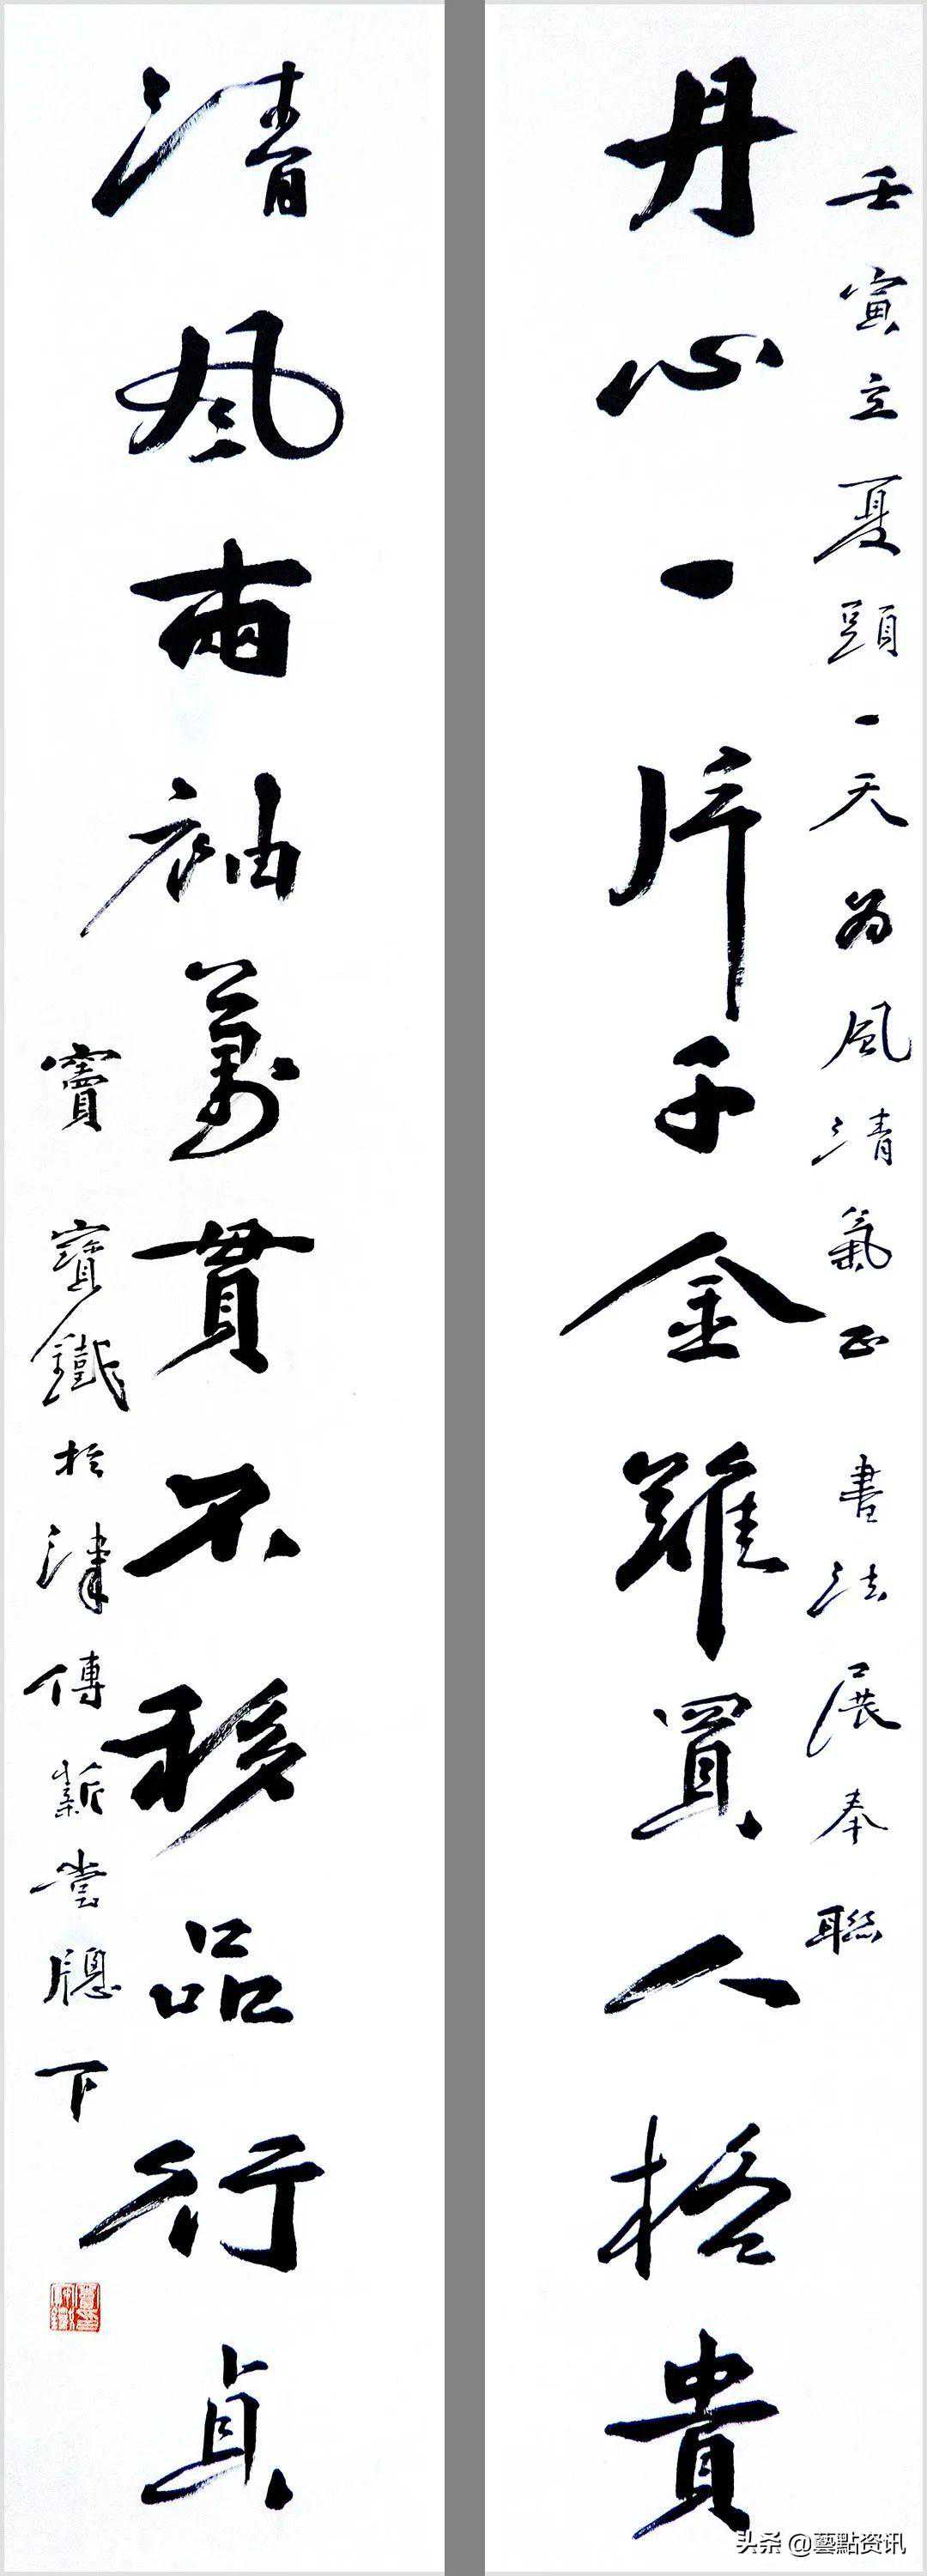 壬寅立夏頭一天為風清氣正書法展奉聯
丹心一片千金難買人格貴
清風兩袖萬貫不移品行貞
竇寶鐵於津傳薪堂牕下
头条 @藝點资讯